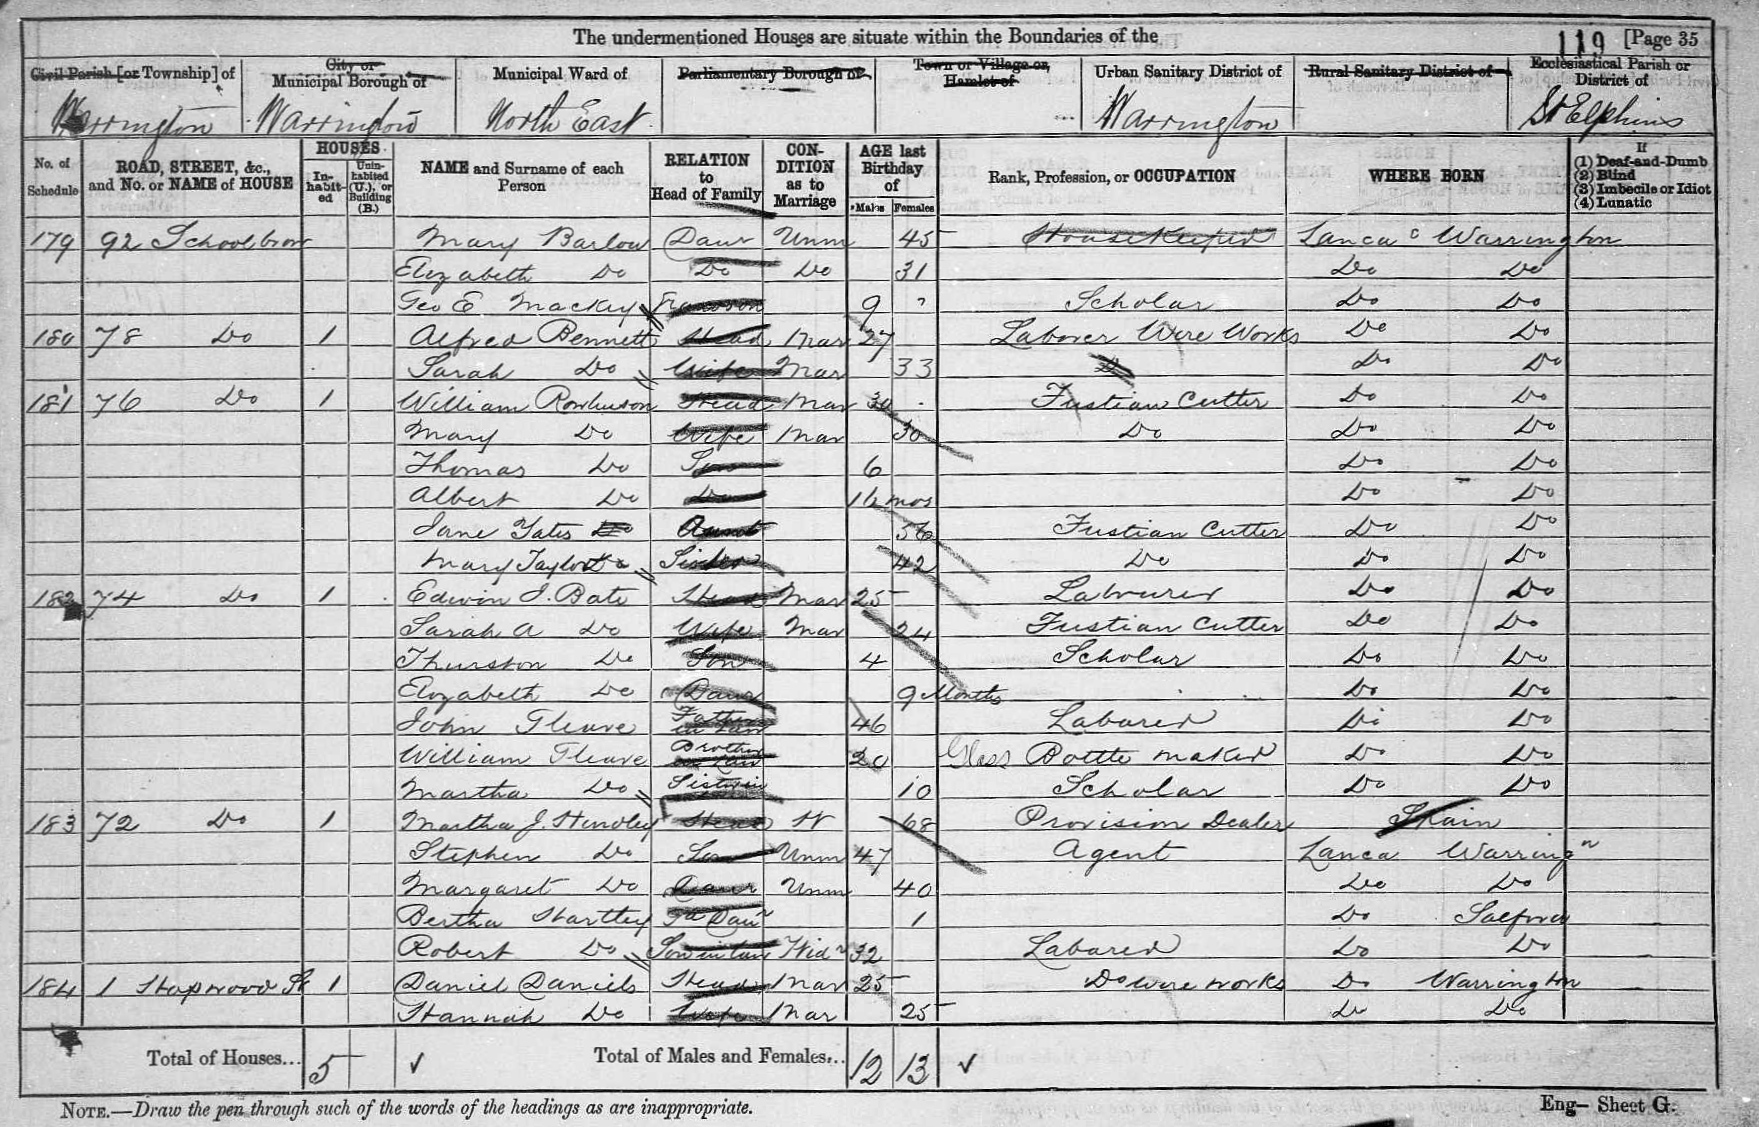 The undermentioned Houses are situate within the Boundaries of the
119 [Page 35
Civil Parish [or Township] of
City or Municipal Borough of
Municipal Ward of
Parliamentary Borough of
Town or Village or Hamlet of
Urban Sanitary District of
Rural Sanitary District of
Ecclesiastical Parish or District of
Warrington Warrington North East Warrington St Elphins
No. of Schedule
ROAD, STREET, &c., and No. or NAME of HOUSE
HOUSES
In-habit-ed
Unin-habited (U.), or Building (B.)
NAME and Surname of each Person
RELATION to Head of Family
CON-DITION as to Marriage
AGE last Birthday of
Males Females
Rank, Profession, or OCCUPATION
WHERE BORN
If
(1) Deaf-and-Dumb
(2) Blind
(3) Imbecile or Idiot
(4) Lunatic
179 92 School brow Mary Barlow Daur Unm 45 Housekeeper Lanca Warrington
Elizabeth Do Do Do 31 Do Do
Geo E Mackey Grandson 9 Scholar Do Do
180 78 Do 1 Alfred Bennett Head Mar 27 Laborer Wire Works Do Do
Sarah Do Wife Mar 33 Do Do
181 76 Do 1 William Head Mar 30 Fustian Cutter Do Do
Mary Do Wife Mar 30 Do Do Do
Thomas Do Son 6 Do Do
Albert Do Do mos Do Do
Jane Yates Do Aunt 56 Fustian Cutter Do Do
Mary Taylor Sister 42 Do Do Do
182 74 Do 1 Edwin J. Bate Head Mar 25 Labourer Do Do
Sarah A Do Wife Mar 24 Fustian Cutter Do Do
Thurston Do Son 4 Scholar Do Do
Elizabeth Do Daur 9 Months Do Do
John Gleave Father in Law 46 Laborer Do Do
William Gleave Brother in Law 20 Glass Bottle maker Do Do
Martha Do Sister in 10 Scholar Do Do
183 72 Do 1 Martha J. Hindley Head W 68 Provision Dealer Spain
Stephen Do Son Unm 47 Agent Lanca Warringn
Margaret Do Daur Unm 40 Do Do
Bertha Hartley Gd Daur 1 Do Salford
Robert Do Son in law Widr 32 Laborer Do Do
184 1 St 1 Daniel Daniels Head Mar 25 Do wire works Do Warrington
Hannah Do Wife Mar 25 Do Do
Total of Houses... 5 ✓ Total of Males and Females... 12 13 ✓
NOTE.—Draw the pen through such of the words of the headings as are inappropriate.
Eng— Sheet G.